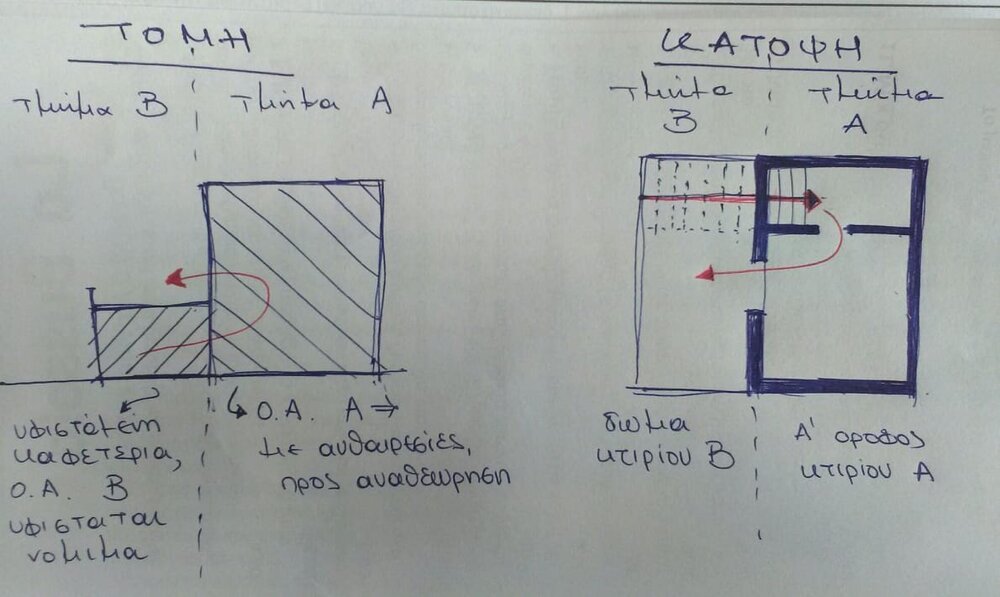 ΤΟΜΗ
τμήμα Β
τμήμα Α
υφιστάμενη
καφετέρια,
Ο.Α. Β
υφίσταται
νόμιμα
Ο.Α. Α ⇒
με αυθαιρεσίες,
προς αναθεώρηση
ΚΑΤΟΨΗ
τμήμα
Β
τμήμα
Α
δώμα
κτιρίου Β
Α' όροφος
κτιρίου Α